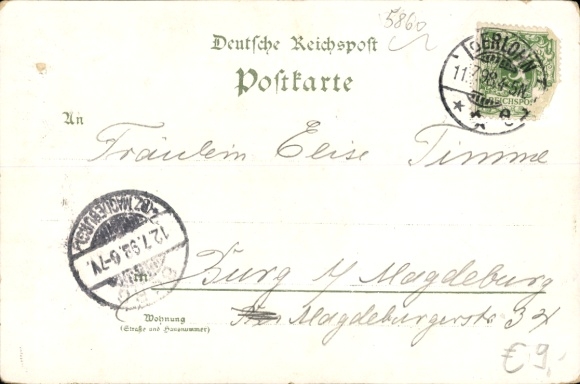 5860
Deutsche Reichspost
Postkarte
ISERLOHN
11.7.98
REICHSPOST
An
Fräulein Elise Timme
BZ. MAGDEBURG
12.7.98.6-7V.
BURG
Burg / Magdeburg
Magdeburgerstr
Wohnung
(Straße und Hausnummer)
€ 9,-